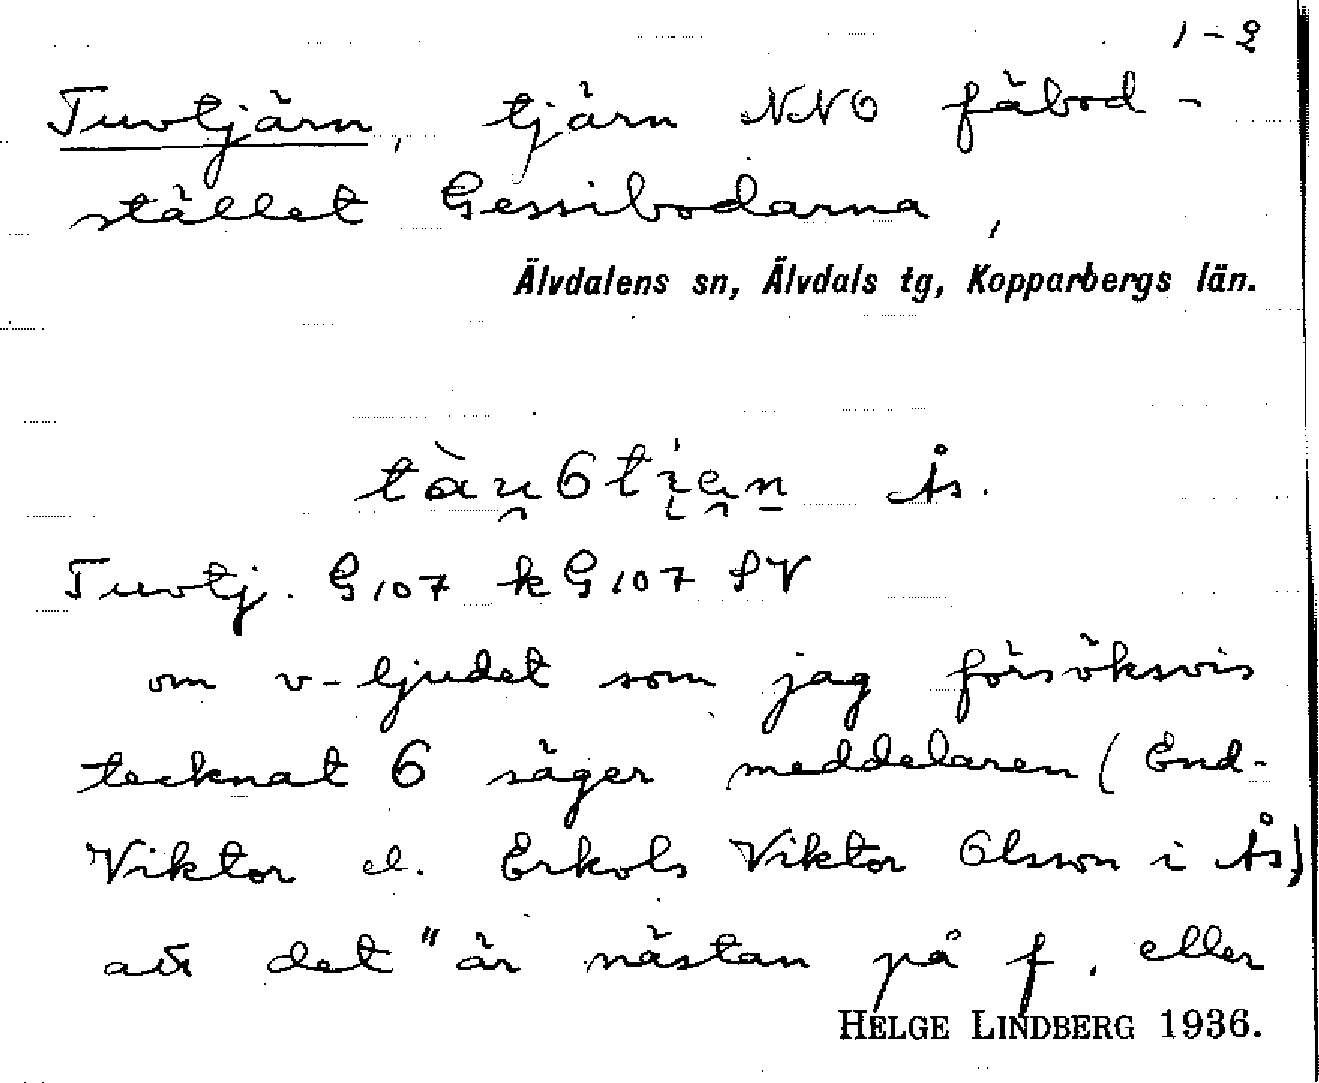 1-2
Tuvtjärn, tjärn NNO fäbod-
stället Gessibodarna,
Älvdalens sn, Älvdals tg, Kopparbergs län.
tàu̯6ti̯e̯n̠ Ås.
Tuvtj. G107 kG107 SV
om v-ljudet som jag försöksvis
tecknat 6 säger meddelaren (End-
Viktor el. Erkols Viktor Olsson i Ås)
att det "är nästan på f, eller
HELGE LINDBERG 1936.